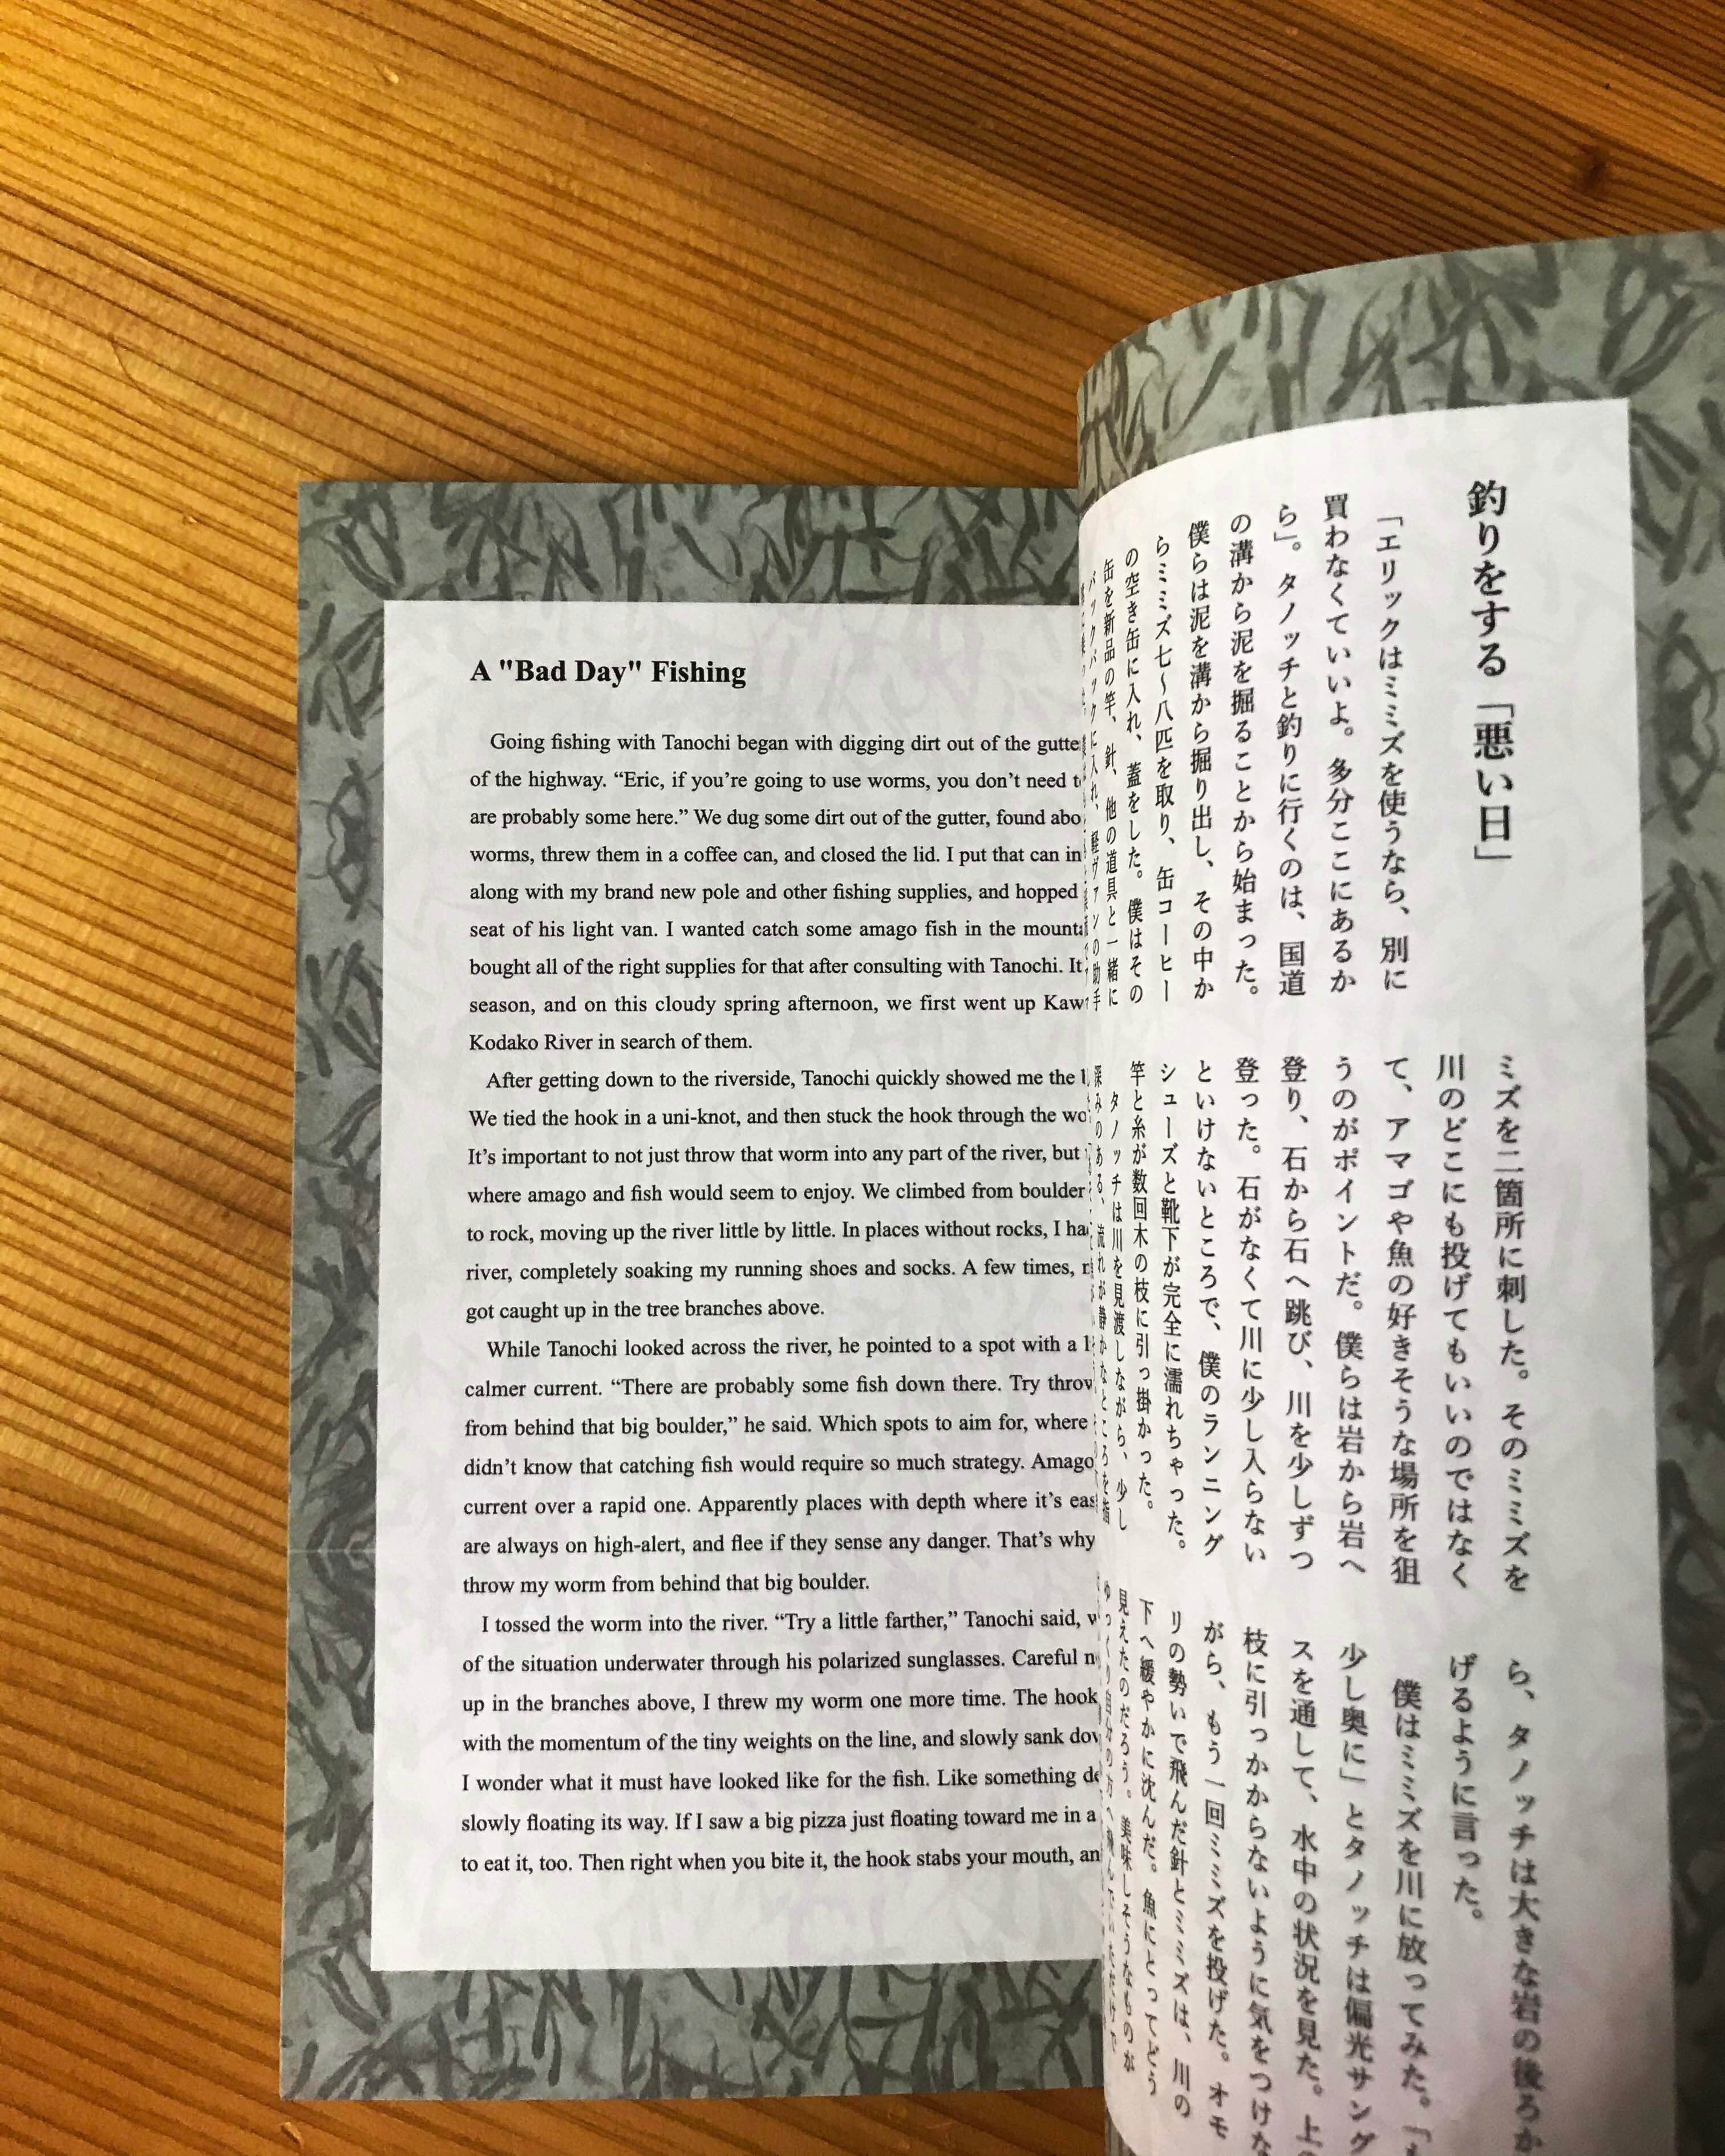 A "Bad Day" Fishing
Going fishing with Tanochi began with digging dirt out of the gutte
of the highway. “Eric, if you’re going to use worms, you don’t need
are probably some here.” We dug some dirt out of the gutter, found abo
worms, threw them in a coffee can, and closed the lid. I put that can in
along with my brand new pole and other fishing supplies, and hopped
seat of his light van. I wanted catch some amago fish in the mount
bought all of the right supplies for that after consulting with Tanochi. It
season, and on this cloudy spring afternoon, we first went up Kaw
Kodako River in search of them.
After getting down to the riverside, Tanochi quickly showed me the
We tied the hook in a uni-knot, and then stuck the hook through the wo
It’s important to not just throw that worm into any part of the river, but
where amago and fish would seem to enjoy. We climbed from boulder
to rock, moving up the river little by little. In places without rocks, I ha
river, completely soaking my running shoes and socks. A few times,
got caught up in the tree branches above.
While Tanochi looked across the river, he pointed to a spot with a
calmer current. “There are probably some fish down there. Try throw
from behind that big boulder,” he said. Which spots to aim for, where
didn’t know that catching fish would require so much strategy. Amago
current over a rapid one. Apparently places with depth where it’s eas
are always on high-alert, and flee if they sense any danger. That’s why
throw my worm from behind that big boulder.
I tossed the worm into the river. “Try a little farther,” Tanochi said,
of the situation underwater through his polarized sunglasses. Careful n
up in the branches above, I threw my worm one more time. The hook
with the momentum of the tiny weights on the line, and slowly sank dow
I wonder what it must have looked like for the fish. Like something de
slowly floating its way. If I saw a big pizza just floating toward me in a
to eat it, too. Then right when you bite it, the hook stabs your mouth, an
釣りをする「悪い日」
「エリックはミミズを使うなら、別に
買わなくていいよ。多分ここにあるか
ら」。タノッチと釣りに行くのは、国道
の溝から泥を掘ることから始まった。
僕らは泥を溝から掘り出し、その中か
らミミズ七〜八匹を取り、缶コーヒー
の空き缶に入れ、蓋をした。僕はその
缶を新品の竿、針、他の道具と一緒に
バックパックに入れ、軽ヴァンの助手
ミズを二箇所に刺した。そのミミズを
川のどこにも投げてもいいのではなく
て、アマゴや魚の好きそうな場所を狙
うのがポイントだ。僕らは岩から岩へ
登り、石から石へ跳び、川を少しずつ
登った。石がなくて川に少し入らない
といけないところで、僕のランニング
シューズと靴下が完全に濡れちゃった。
竿と糸が数回木の枝に引っ掛かった。
タノッチは川を見渡しながら、少し
深みのある、流れが静かなところを指
ら、タノッチは大きな岩の後ろか
げるように言った。
僕はミミズを川に放ってみた。「も
少し奥に」とタノッチは偏光サング
スを通して、水中の状況を見た。上の
枝に引っかからないように気をつけな
がら、もう一回ミミズを投げた。オモ
リの勢いで飛んだ針とミミズは、川の
下へ緩やかに沈んだ。魚にとってどう
見えたのだろう。美味しそうなものが
ゆっくり自分の方へ